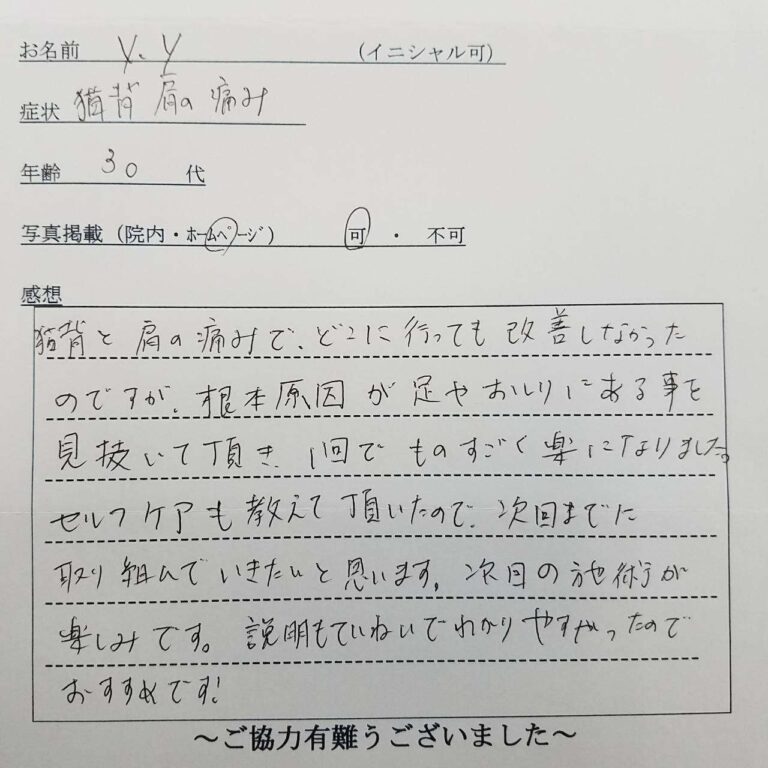 お名前 Y.Y (イニシャル可)
症状 猫背 肩の痛み
年齢 30 代
写真掲載(院内・ホームページ) 可 ・ 不可
感想
猫背と肩の痛みで、どこに行っても改善しなかった
のですが、根本原因が足やおしりにある事を
見抜いて頂き、1回でものすごく楽になりました。
セルフケアも教えて頂いたので、次回までに
取り組んでいきたいと思います。次回の施術が
楽しみです。説明もていねいでわかりやすかったので
おすすめです!
～ご協力有難うございました～